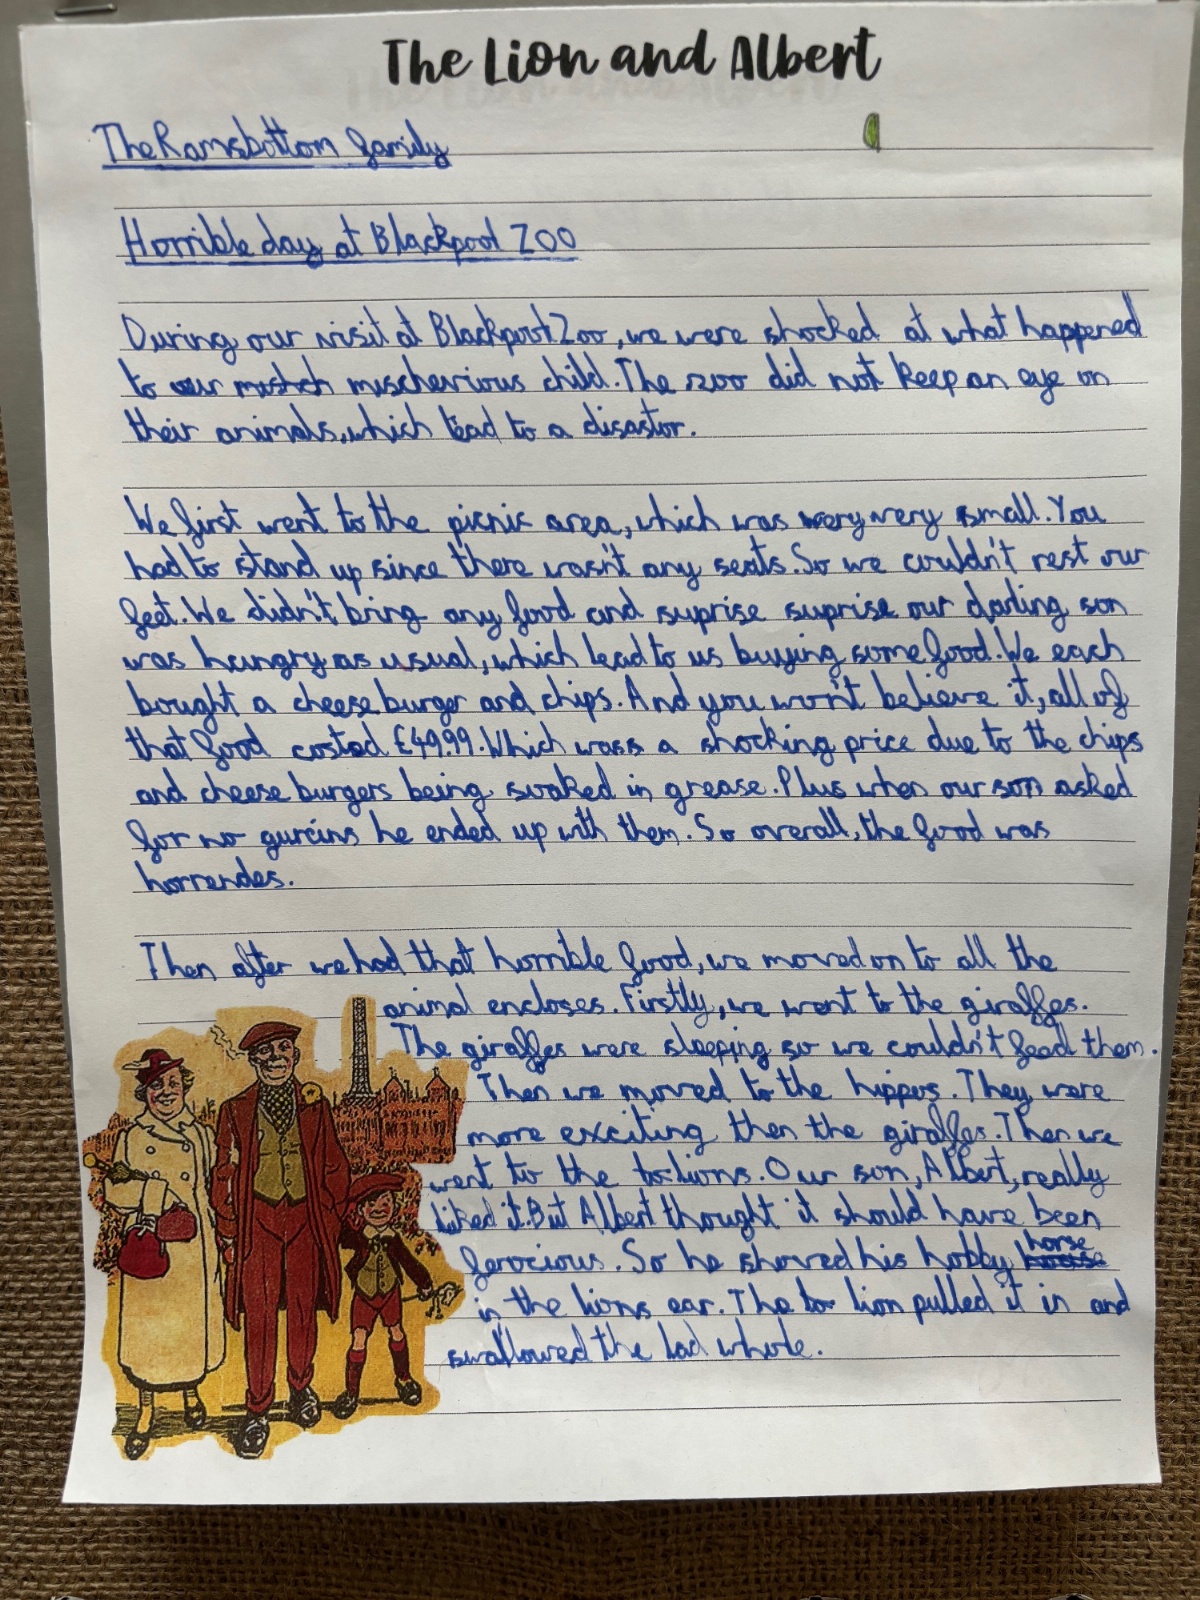 The Lion and Albert
The Ramsbottom family
Horrible day at Blackpool Zoo
During our visit at Blackpool Zoo, we were shocked at what happened
to our mischevious child. The zoo did not keep an eye on
their animals, which lead to a disastor.
We first went to the picnic area, which was very very small. You
had to stand up since there wasn't any seats. So we couldn't rest our
feet. We didn't bring any food and suprise suprise our darling son
was hungry as usual, which lead to us buying some food. We each
bought a cheese burger and chips. And you won't believe it, all of
that food costed £49.99. Which wass a shocking price due to the chips
and cheese burgers being soaked in grease. Plus when our son asked
for no gurcins he ended up with them. So overall, the food was
horrendes.
Then after we had that horrible food, we moved on to all the
animal encloses. Firstly, we went to the giraffes.
The giraffes were sleeping so we couldn't feed them.
Then we moved to the hippos. They were
more exciting then the giraffes. Then we
went to the lions. Our son, Albert, really
liked it. But Albert thought it should have been
ferocious. So he shoved his hobby horse
in the lions ear. The lion pulled it in and
swallowed the lad whole.